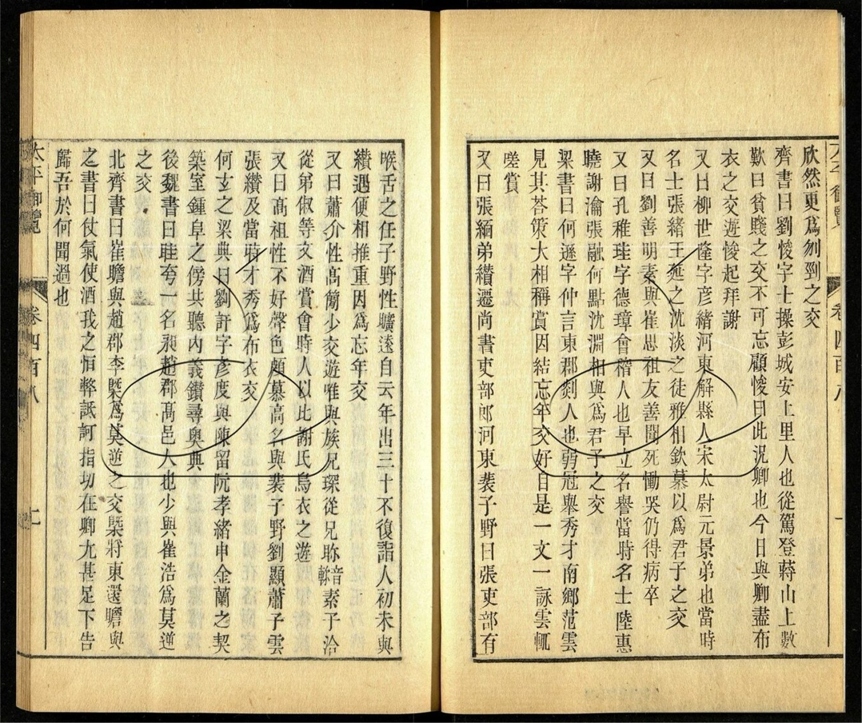 欣然更爲刎剄之交
齊書曰劉悛字士操彭城安上里人也從駕登蔣山上數
歎曰貧賤之交不可忘顧悛曰此況卿也今日與卿盡布
衣之交遊悛起拜謝
又曰柳世隆字彥緒河東解縣人宋太尉元景弟也當時
名士張緒王延之沈淡之徒雅相欽慕以爲君子之交
又曰劉善明素與崔思祖友善聞死慟哭仍得病卒
又曰孔稚珪字德璋會稽人也早立名譽當時名士陸惠
曉謝瀹張融何點沈淵相與爲君子之交
梁書曰何遜字仲言東郡剡人也弱冠舉秀才南鄉范雲
見其荅策大相稱賞因結忘年交好自是一文一詠雲輒
嗟賞
又曰張緬弟纘遷尚書吏部郎河東裴子野曰張吏部有
喉舌之任子野性曠遠自云年出三十不復詣人初未與
纘遇便相推重因爲忘年交
又曰蕭介性高簡少交遊唯與族兄琛從兄眎音素子洽
從弟俶等文酒賞會時人以比謝氏烏衣之遊
又曰高祖性不好聲色頗慕高名與裴子野劉顯蕭子雲
張纘及當時才秀爲布衣交
何玄之梁典曰劉訏字彥度與陳留阮孝緒申金蘭之契
築室鍾阜之傍共聽內義鑽尋奧典
後魏書曰眭夸一名昶趙郡高邑人也少與崔浩爲莫逆
之交
北齊書曰崔瞻與趙郡李槩爲莫逆之交槩將東還瞻與
之書曰仗氣使酒我之恒弊詆訶指切在卿尤甚足下告
歸吾於何聞過也
太平御覽 卷四百八